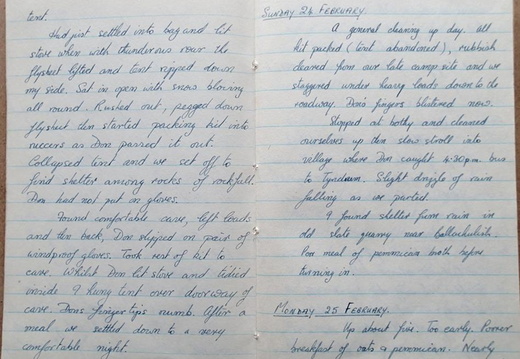 tent.
Had just settled into bag and lit
stove when with thunderous roar the
flysheet lifted and tent ripped down
my side. Sat in open with snow blowing
all round. Rushed out, pegged down
flysheet then started packing kit into
ruccers as Don passed it out.
Collapsed tent and we set off to
find shelter among rocks of rockfall.
Don had not put on gloves.
Found comfortable cave, left loads
and then back, Don slipped on pair of
windproof gloves. Took rest of kit to
cave. Whilst Don lit stove and tidied
inside I hung tent over doorway of
cave. Dons finger tips numb. After a
meal we settled down to a very
comfortable night.
SUNDAY 24 FEBRUARY.
A general cleaning up day. All
kit packed (tent abandoned), rubbish
cleared from our late camp site and we
staggered under heavy loads down to the
roadway. Dons fingers blistered now.
Stopped at bothy and cleaned
ourselves up then slow stroll into
village where Don caught 4.30pm. bus
to Tyndrum. Slight drizzle of rain
falling as we parted.
I found shelter from rain in
old slate quarry near Ballachulish.
Poor meal of pemmican broth before
turning in.
MONDAY 25 FEBRUARY.
Up about five. Too early. Poorer
breakfast of oats & pemmican. Nearly